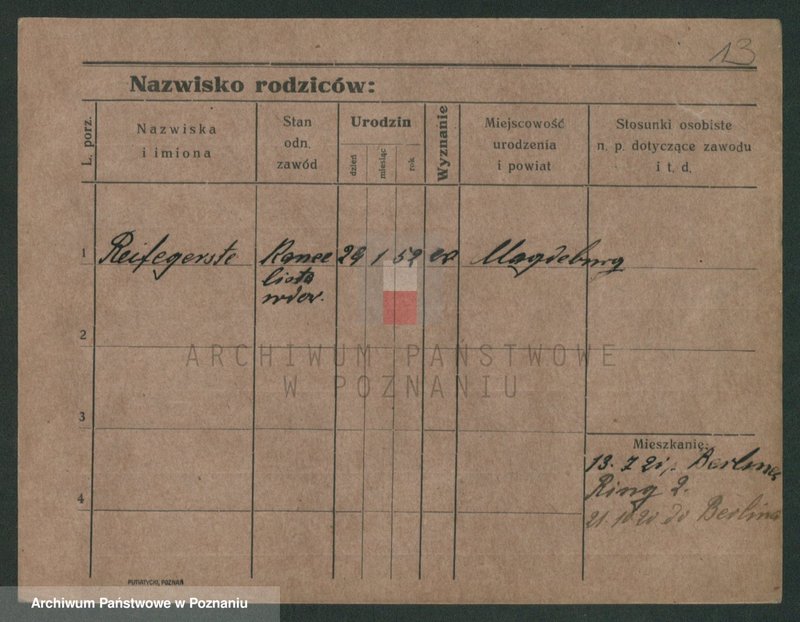 13
Nazwisko rodziców:
L. porz.
Nazwiska
i imiona
Stan
odn.
zawód
Urodzin
dzień
miesiąc
rok
Wyznanie
Miejscowość
urodzenia
i powiat
Stosunki osobiste
n. p. dotyczące zawodu
i t. d.
1 Reifegerste 29 1 52 Magdeburg
2
ARCHIWUM PAŃSTWOWE
W POZNANIU
3
Mieszkanie:
Ring 2.
4
do Berlina
PUTIATYCKI, POZNAŃ
Archiwum Państwowe w Poznaniu